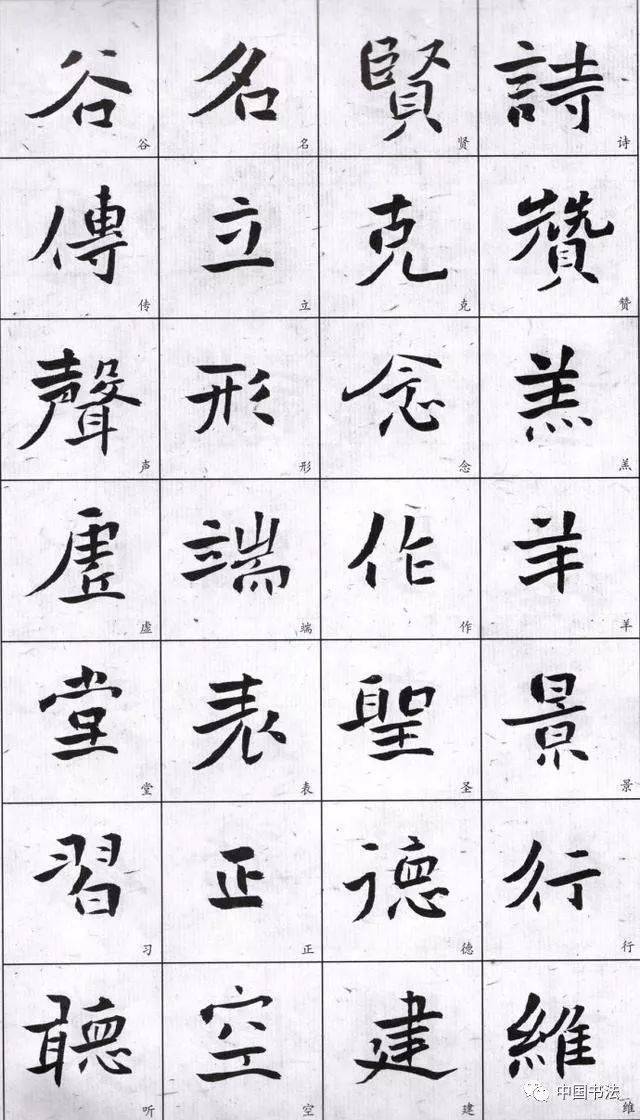 詩贊羔羊景行維
诗赞羔羊景行维
賢克念作聖德建
贤克念作圣德建
名立形端表正空
名立形端表正空
谷傳聲虛堂習聽
谷传声虚堂习听
中国书法